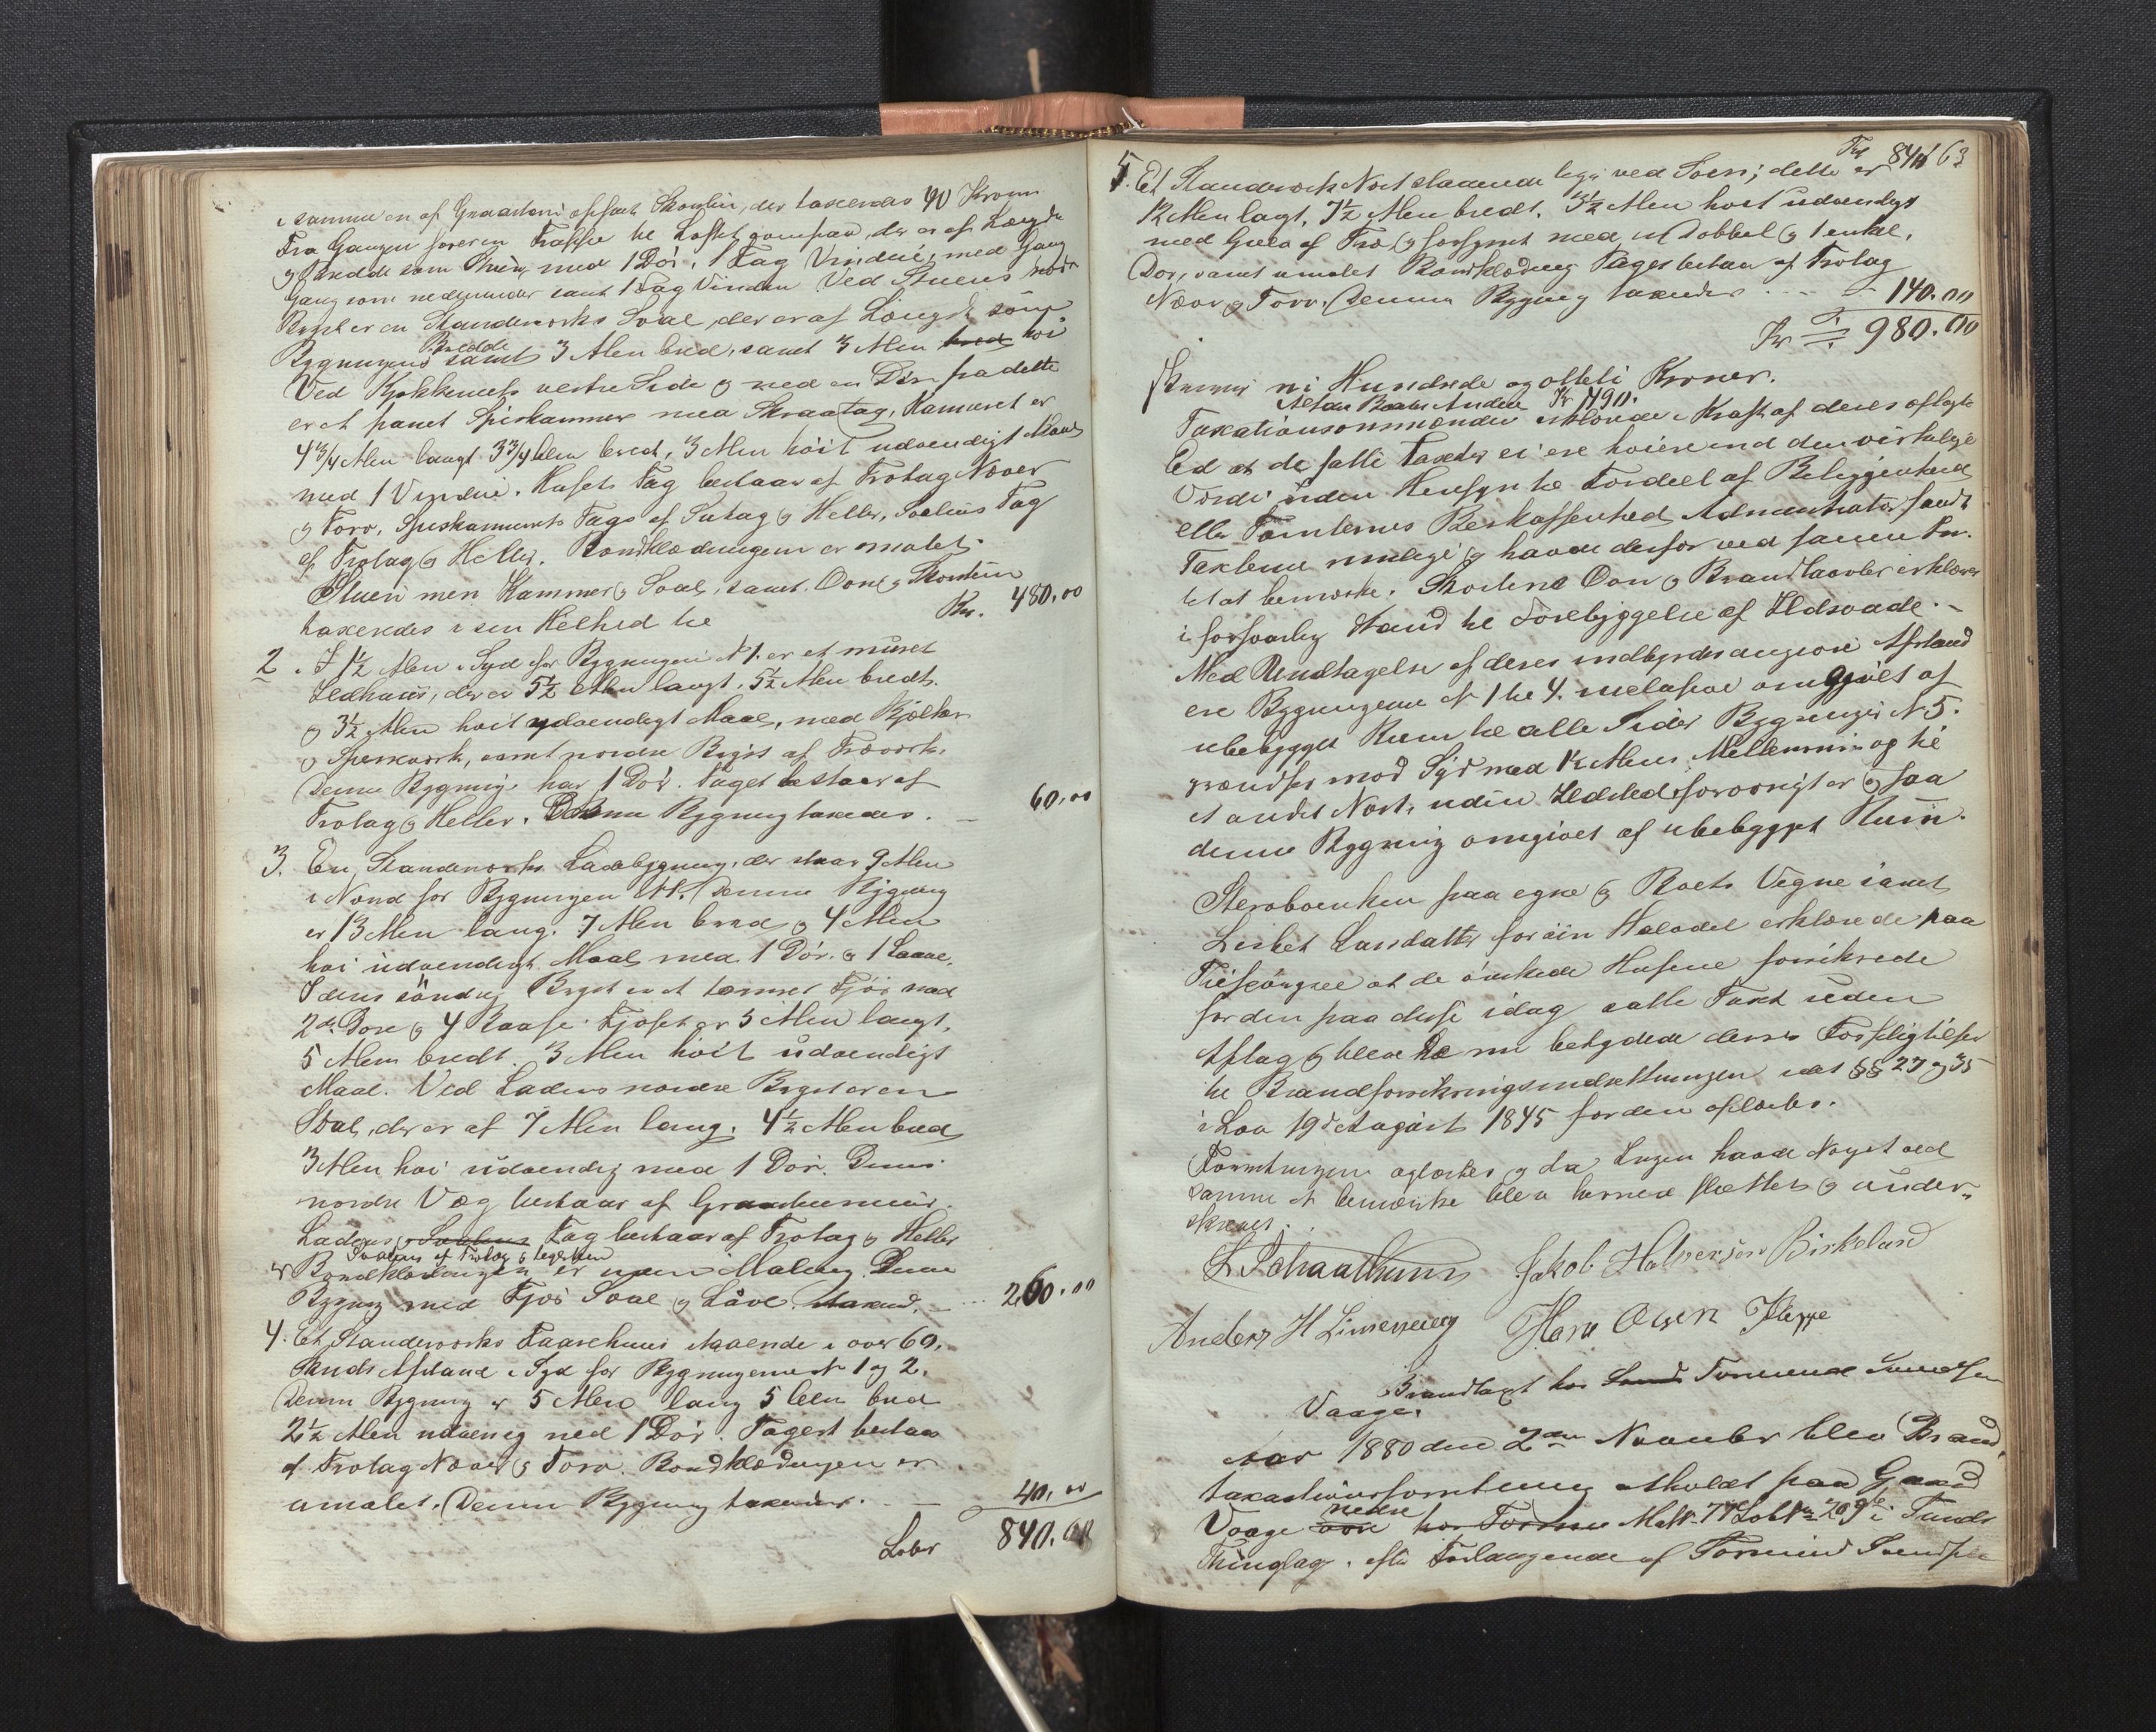 i samme en af Graasteen opført Skorsten, der taxeredes 40 Kroner
Fra Gangen fører en Trappe til Loftet ovenpaa, der er af Længde
og Bredde som Stuen, med 1 Dør, 1 Fag Vindue, med Gang
Gang som nedenunder samt 1 Fag Vindue Ved Stuens nordre
Bryst er en Standværks Sval, der er af Længde som
Bygningens Bredde samt 3 Alen bred, samt 3 Alen bred høi
Ved Kjøkkenets vestre Side og med en Dør fra dette
er et panet Spiskammer med Skraatag, Kammeret er
4 3/4 Alen langt 3 3/4 Alen bredt, 3 Alen høit udvendigt Maal
med 1 Vindue. Husets Tag bestaar af Trotag Næver
og Torv, Spiskammerets Tag af Sutag og Heller, Svalens Tag
af Trotag og Heller. Bordklædningen er malet.
Stuen men Kammer og Sval, samt Ovne og Skorsten
taxeredes i sin Helhed til Kr. 480.00
2. I 1 1/2 Alen i Syd for Bygningen N 1. er et muret
Ildhuus, der er 5 1/2 Alen langt, 5 1/2 Alen bredt.
og 3 1/2 Alen høit udvendigt Maal, med Bjelker
og Sperreværk, samt nordre Bryst af Træværk.
Denne Bygning har 1 Dør. Taget bestaar af
Trotag og Heller. Denne Bygning taxeredes. 60.00
3. En Standværks Ladebygning, der staar 9 Alen
i Nord for Bygningen N 1. Denne Bygning
er 13 Alen lang. 7 Alen bred og 4 Alen
høi udvendigt Maal med 1 Dør. og 1 Laave.
I dens søndre Bryst er et tømret Fjøs med
2de Døre og 4 Baase. Fjøset er 5 Alen langt,
5 Alen bredt. 3 Alen høit udvendigt
Maal. Ved Ladens nordre Bryst er en
Sval, der er af 7 Alen lang. 4 1/2 Alen bred
3 Alen høi udvendig med 1 Dør. Dens
nordre Væg bestaar af Graasteensmuur.
Ladens og Svalens Tag bestaar af Trotag og Heller
Svalens af Trotag og
Bordklædningen er uden Maling. Denne
Bygning med Fjøs Sval og Låve taxered. 260.00
4. Et Standværks Faarehuus staaende i over 60
Skridts Afstand i Syd for Bygningerne N 1 og 2.
Denne Bygning er 5 Alen lang 5 Alen bred
2 1/2 Alen udvendig med 1 Dør. Taget bestaar
af Trotag Næver og Torv. Bordklædningen er
umalet. Denne Bygning taxeredes. 40.00
Lober 840.00
Trf 840 63
5. Et Standværks Nøst staaende lige ved Søen; dette er
12 Alen lagt, 7 1/2 Alen bredt. 3 1/2 Alen høit udvendigt
med Gulv af Træ og forsynet med en Dobbel og 1 enkel,
Dør, samt umalet Bordklædning Taget bestaar af Trotag
Næver og Torv. Denne Bygning taxeredes 140.00
Kr 980.00
skriver ni Hundrede og otteti Kroner.
Kr 490.
Taxationsmændene erklærede i Kraft af deres aflagte
Ed at de satte Taxter ei ere høiere end den virkelige
Værdi uden Hensyn til Fordeel af Beliggenhed
eller Tomternes Beskaffenhed Administrator fandt
Taxterne rimelige og havde derfor ved samme Intet
at bemærke. Skorstene Ovn og Brandtavler erklæres
i forsvarlig Stand til Forebyggelse af Ildsvaade.
Med Undtagelse af deres indbyrdes angivne Afstand
ere Bygningerne N 1 til 4. omgivet af
ubebygget Rum til alle Sider Bygningen N 5.
grændser mod Syd med 1 1/2 Alens Mellemrum op til
et andet Nøst, uden Ildsted, forøvrigt er ogsaa
denne Bygning omgivet af ubebygget Rum.
paa egne og Boets Vegne samt
Lisbet Larsdatter for sin Halvdel erklærede paa
Tilspørgsel at de ønskede Husene forsikrede
for den paa disse idag satte Taxt uden
Aftag og blev de nu betydede deres Forpligtelser
til Brandforsikringsindretningen ved §§ 27 og 35
i Lov 19de August 1845 for den oplæstes.
Forretningen oplæstes og da Ingen havde Noget ved
samme at bemærke blev denne sluttet og under-
skrevet.
L Schaathun Jakob Halversen Birkeland
Anders H Hans Olsen Kleppe
Brandtaxt hos Tormund Svendsen
Vaage.
Aar 1880 den 2den November blev Brand
taxationsforretning afholdt paa Gaard
Vaage nedre Matr. 77 i Finds
Thinglag, efter Forlangende af Tormund Svendsen